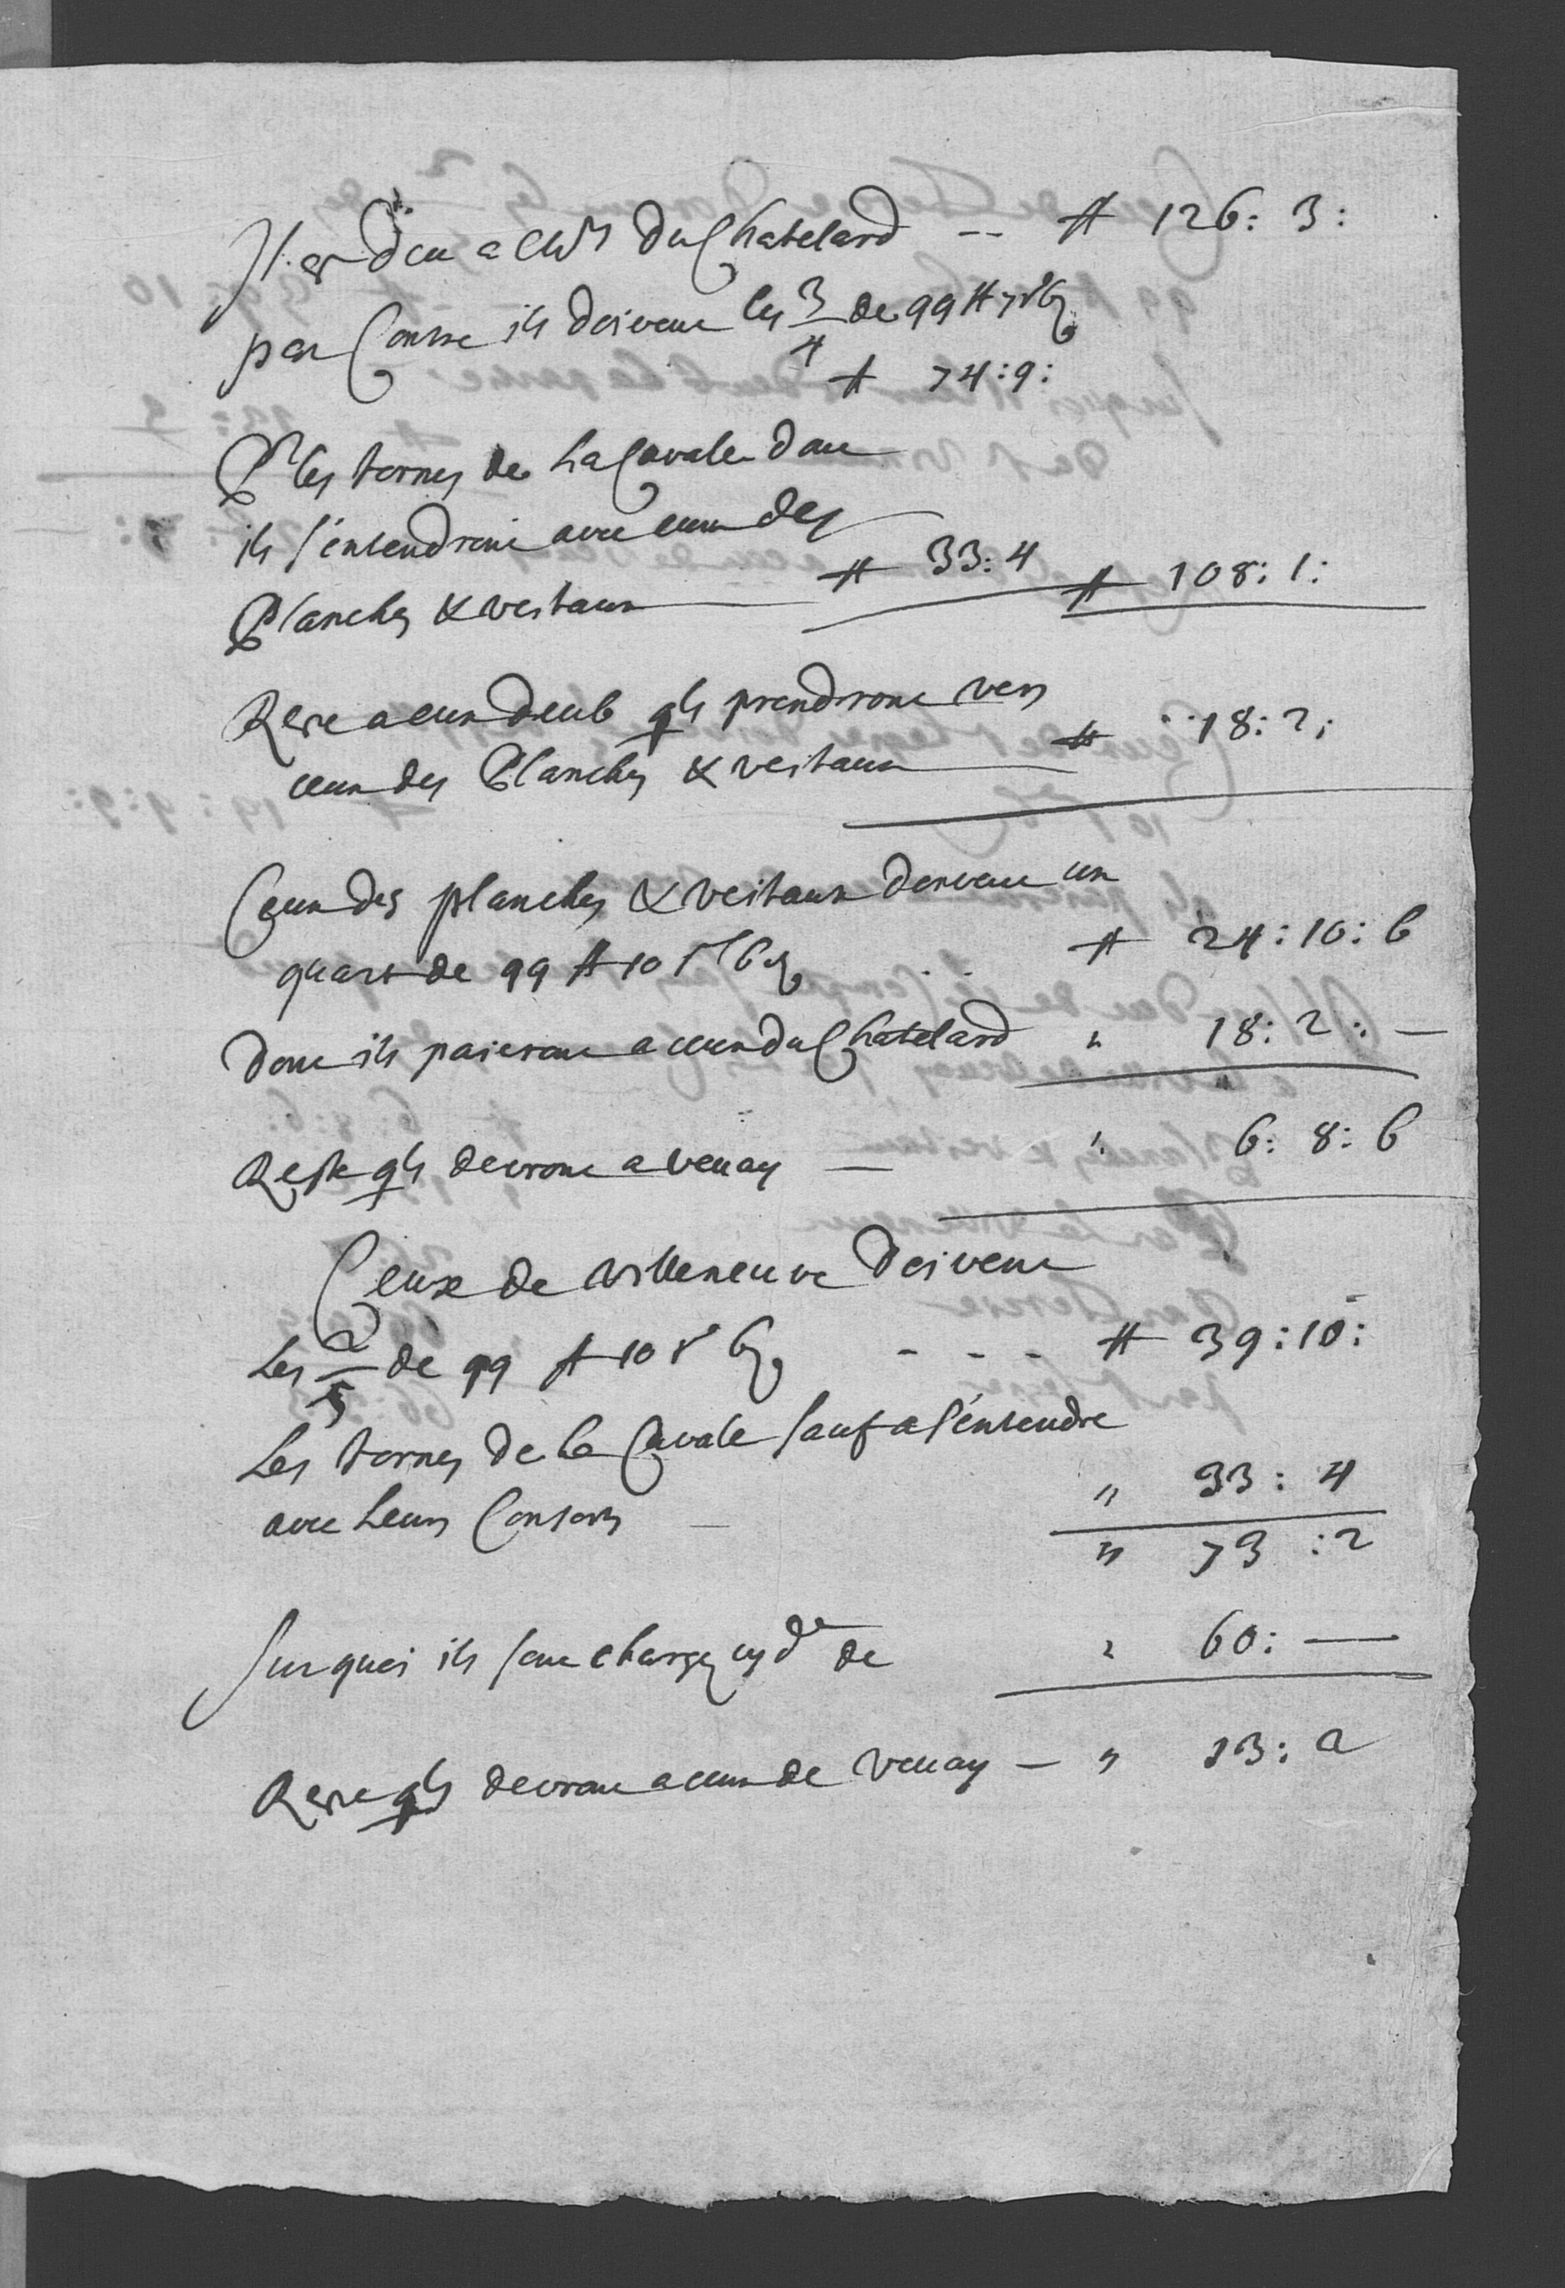 Il est deu a ceux du Chatelard -- ₶ 126: 3:
par Contre ils doivent les 3/4 de 99 ₶
₶ 74: 9:
Pr les tornes de la Cavale dont
ils s'entendront avec ceux des
Planches & veitaux ₶ 33: 4 ₶ 108: 1:
Reste a eux deub qls prendront vers
ceux des Planches & veitaux ₶ 18: 2:
Ceux des planches & veitaux doivent un
quart de 99 ₶ 10 s 6 d . . ₶ 24: 10: 6
Dont ils paieront a ceux du Chatelard " 18: 2: —
Reste qls devront a vevay — " 6: 8: 6
Ceux de villeneuve doivent
Les 2/5 de 99 ₶ 10 s 6 d - - - ₶ 39: 10:
Les tornes de la Cavale sauf a s'entendre
avec leurs Consorts — " 33: 4
" 73: 2
Sur quoi ils sont chargez cy de de " 60: —
Reste qls devront a ceux de vevay — " 13: 2